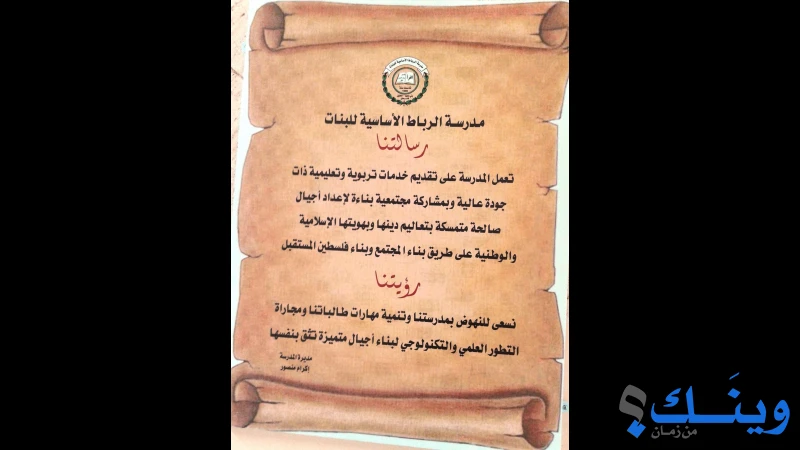 مدرسة الرباط الأساسية للبنات
رسالتنا
تعمل المدرسة على تقديم خدمات تربوية وتعليمية ذات
جودة عالية وبمشاركة مجتمعية بناءة لإعداد أجيال
صالحة متمسكة بتعاليم دينها وبهويتها الإسلامية
والوطنية على طريق بناء المجتمع وبناء فلسطين المستقبل
رؤيتنا
نسعى للنهوض بمدرستنا وتنمية مهارات طالباتنا ومجاراة
التطور العلمي والتكنولوجي لبناء أجيال متميزة تثق بنفسها
مديرة المدرسة
إكرام منصور
وينَك؟
من زمان